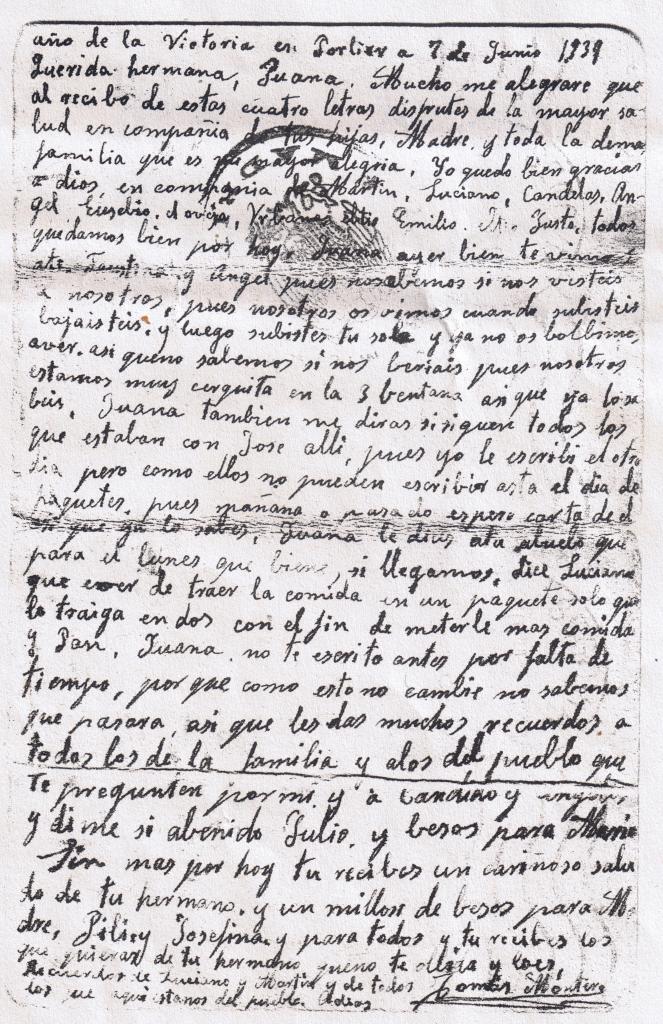 año de la Victoria en Porlier a 7 de Junio 1939
Querida hermana, Juana. Mucho me alegrare que
al recibo de estas cuatro letras disprutes de la mayor sa-
lud en compañia de tus hijas, Madre, y toda la demas
familia que es mi mayor alegria. Yo quedo bien gracias
a dios, en compañia de Martin, Luciano, Candelas, An-
gel, Eusebio, Emilio, Justo, todos
quedamos bien por hoy. Juana ayer bien te vimos
ati, Faustina y Angel pues nosabemos si nos visteis
a nosotros, pues nosotros os vimos cuando subisteis
bajaisteis, y luego subistes tu sola y ya no os bolbimos
aver, asi queno sabemos si nos beriais pues nosotros
estamos muy cerquita en la 3 bentana asi que ya losa
beis, Juana tambien me diras sisiguen todos los
que estaban con Jose alli, pues yo le escribi el otro
dia pero como ellos no pueden escribir asta el dia de
paquetes, pues mañana o pasado espero carta de el
asi que ya lo sabes, Juana le dices atu abuelo que
para el lunes que biene, si llegamos, dice Luciano
que ever de traer la comida en un paquete solo que
lo traiga en dos con el fin de meterle mas comida
y Pan, Juana, no te escrito antes por falta de
tiempo, porque como esto no cambie no sabemos
que pasara, asi que les das muchos recuerdos a
todos los de la familia y alos del pueblo que
te pregunten pormi, y a y
y dime si abenido Julio, y besos para Maria
Sin mas por hoy tu recibes un cariñoso salu
do de tu hermano, y un millon de besos para Ma-
dre, Pili, y Josefina, y para todos y tu recibes los
que quieras de tu hermano queno te olvia y loes,
Recuerdos de Luciano y Martin y de todos Tomas Montero
los que aqui estanos del pueblo. Adios